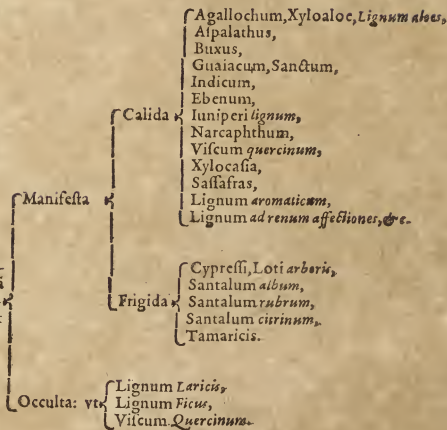 Agallochum, Xyloaloe, Lignum aloes,
Aſpalathus,
Buxus,
Guaiacum, Sanctum,
Indicum,
Ebenum,
Calida
Iuniperi lignum,
Narcaphthum,
Viſcum quercinum,
Xylocaſia,
Saſſafras,
Lignum aromaticum,
Lignum ad renum affectiones, &c.
Manifeſta
Cypreſſi, Loti arboris,
Santalum album,
Frigida
Santalum rubrum,
Santalum citrinum,
Tamaricis.
Occulta: vt
Lignum Laricis,
Lignum Ficus,
Viſcum Quercinum.